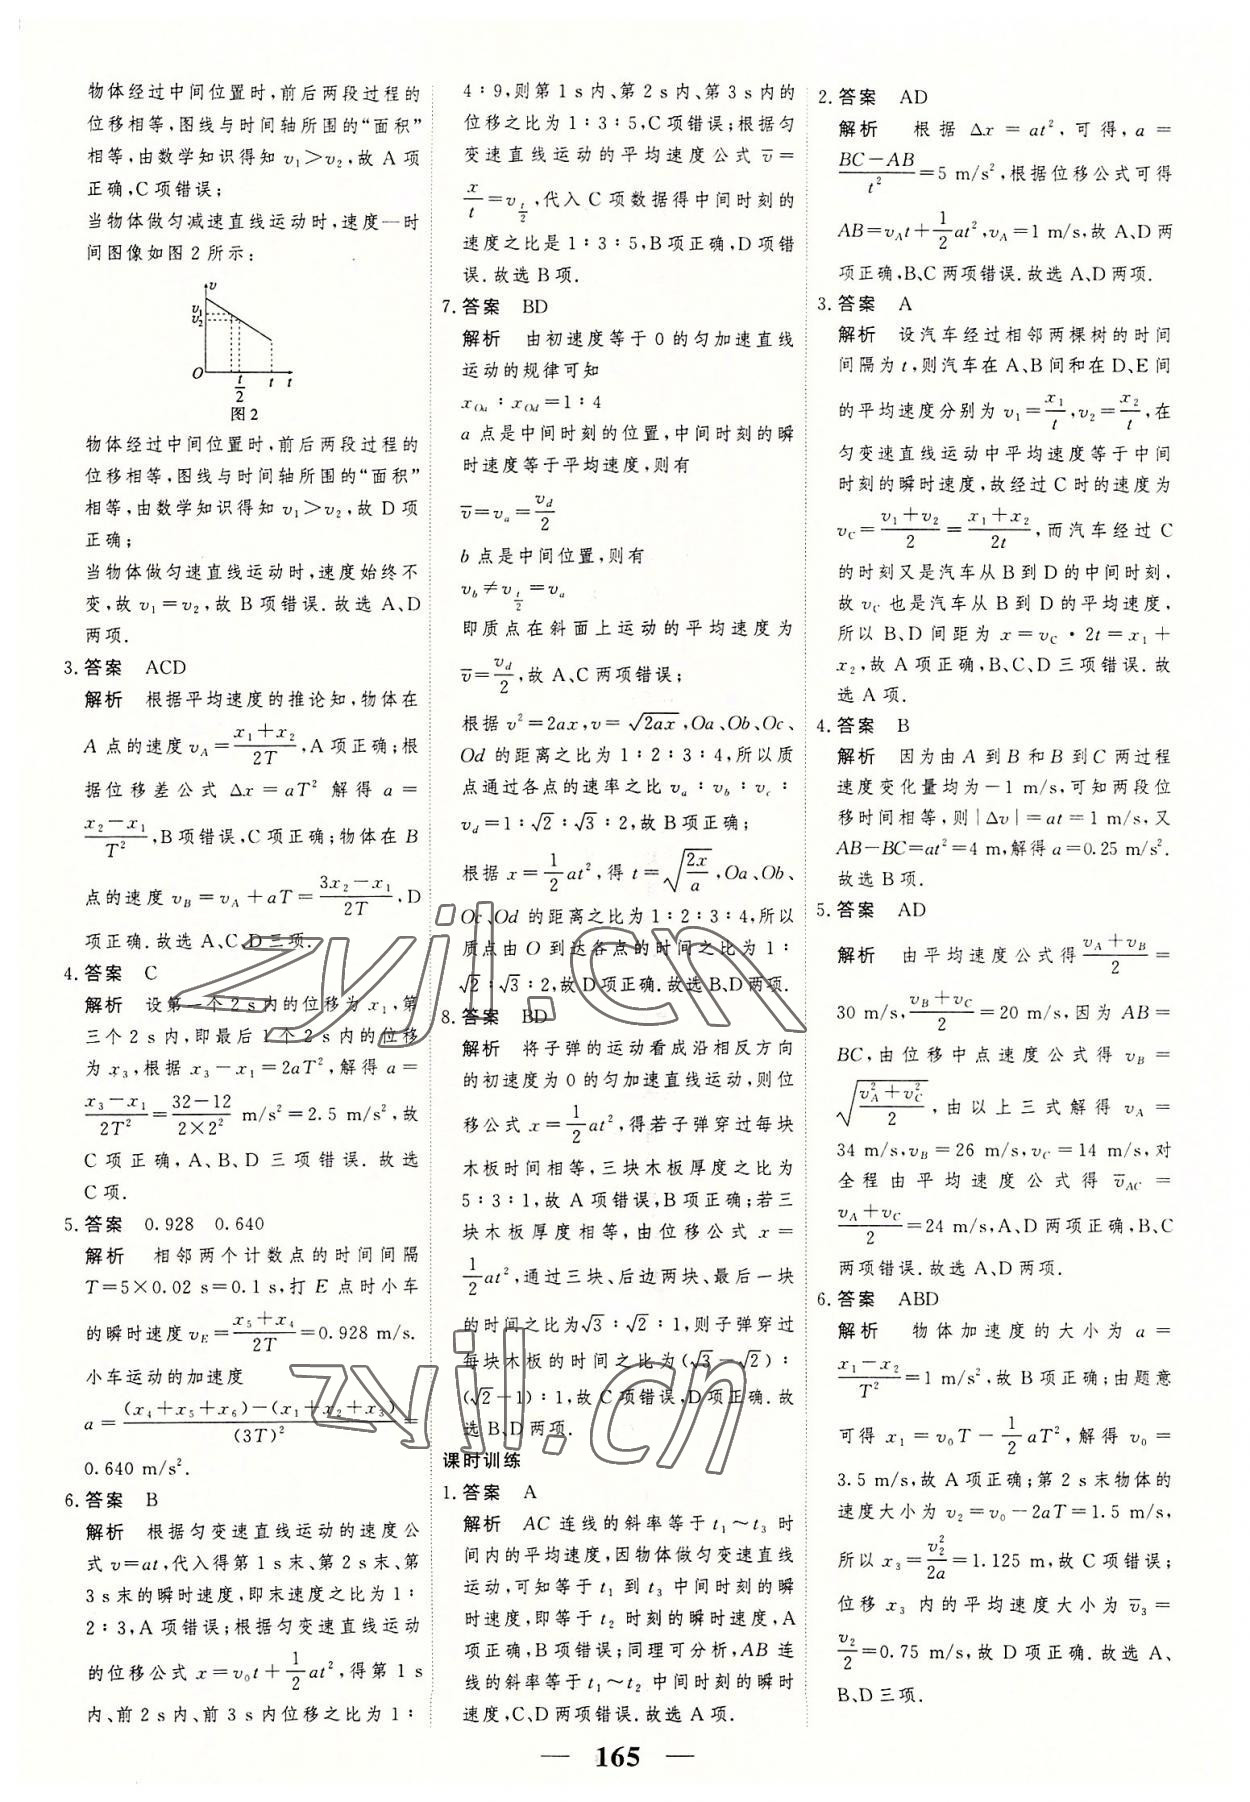 物体经过中间位置时,前后两段过程的
位移相等,图线与时间轴所围的“面积”
相等,由数学知识得知 v₁＞v₂,故 A 项
正确,C项错误;
当物体做匀减速直线运动时,速度—时
间图像如图 2 所示:
v
v₁
v₂
O t/2 t t
图2
物体经过中间位置时,前后两段过程的
位移相等,图线与时间轴所围的“面积”
相等,由数学知识得知 v₁＞v₂,故 D 项
正确;
当物体做匀速直线运动时,速度始终不
变,故 v₁=v₂,故 B 项错误.故选 A、D
两项.
3. 答案 ACD
解析 根据平均速度的推论知,物体在
A 点的速度 v_A=(x₁+x₂)/2T,A 项正确;根
据位移差公式 Δx=aT² 解得 a=
(x₂-x₁)/T²,B项错误,C项正确;物体在 B
点的速度 v_B=v_A+aT=(3x₂-x₁)/2T,D
项正确.故选 A、C、D 三项.
4. 答案 C
解析 设第一个 2 s 内的位移为 x₁,第
三个 2 s 内,即最后 1 个 2 s 内的位移
为 x₃,根据 x₃-x₁=2aT²,解得 a=
(x₃-x₁)/2T²=(32-12)/(2×2²) m/s²=2.5 m/s²,故
C 项正确,A、B、D 三项错误.故选
C项.
5. 答案 0.928 0.640
解析 相邻两个计数点的时间间隔
T=5×0.02 s=0.1 s,打 E 点时小车
的瞬时速度 v_E=(x₅+x₄)/2T=0.928 m/s.
小车运动的加速度
a=((x₄+x₅+x₆)-(x₁+x₂+x₃))/(3T)²=
0.640 m/s².
6. 答案 B
解析 根据匀变速直线运动的速度公
式 v=at,代入得第 1 s 末、第 2 s 末、第
3 s 末的瞬时速度,即末速度之比为 1:
2:3,A 项错误;根据匀变速直线运动
的位移公式 x=v₀t+1/2at²,得第 1 s
内、前 2 s 内、前 3 s 内位移之比为 1:
4:9,则第 1 s 内、第 2 s 内、第 3 s 内的
位移之比为 1:3:5,C 项错误;根据匀
变速直线运动的平均速度公式 v̄=
x/t=v_(t/2),代入 C 项数据得中间时刻的
速度之比是 1:3:5,B 项正确,D 项错
误.故选 B 项.
7. 答案 BD
解析 由初速度等于 0 的匀加速直线
运动的规律可知
x_Oa:x_Od=1:4
a 点是中间时刻的位置,中间时刻的瞬
时速度等于平均速度,则有
v̄=v_a=v_d/2
b 点是中间位置,则有
v_b≠v_(t/2)=v_a
即质点在斜面上运动的平均速度为
v̄=v_d/2,故 A、C 两项错误;
根据 v²=2ax,v=√(2ax),Oa、Ob、Oc、
Od 的距离之比为 1:2:3:4,所以质
点通过各点的速率之比 v_a:v_b:v_c:
v_d=1:√2:√3:2,故 B 项正确;
根据 x=1/2at²,得 t=√(2x/a),Oa、Ob、
Oc、Od 的距离之比为 1:2:3:4,所以
质点由 O 到达各点的时间之比为 1:
√2:√3:2,故 D 项正确.故选 B、D 两项.
8. 答案 BD
解析 将子弹的运动看成沿相反方向
的初速度为 0 的匀加速直线运动,则位
移公式 x=1/2at²,得若子弹穿过每块
木板时间相等,三块木板厚度之比为
5:3:1,故 A 项错误,B 项正确;若三
块木板厚度相等,由位移公式 x=
1/2at²,通过三块、后边两块、最后一块
的时间之比为√3:√2:1,则子弹穿过
每块木板的时间之比为(√3-√2):
(√2-1):1,故 C 项错误,D 项正确.故
选 B、D 两项.
课时训练
1. 答案 A
解析 AC 连线的斜率等于 t₁~t₃ 时
间内的平均速度,因物体做匀变速直线
运动,可知等于 t₁ 到 t₃ 中间时刻的瞬
时速度,即等于 t₂ 时刻的瞬时速度,A
项正确,B项错误;同理可分析,AB 连
线的斜率等于 t₁~t₂ 中间时刻的瞬时
速度,C、D两项错误.故选 A 项.
2. 答案 AD
解析 根据 Δx=at²,可得,a=
(BC-AB)/t²=5 m/s²,根据位移公式可得
AB=v_At+1/2at²,v_A=1 m/s,故 A、D 两
项正确,B、C 两项错误.故选 A、D 两项.
3. 答案 A
解析 设汽车经过相邻两棵树的时间
间隔为 t,则汽车在 A、B 间和在 D、E 间
的平均速度分别为 v₁=x₁/t,v₂=x₂/t,在
匀变速直线运动中平均速度等于中间
时刻的瞬时速度,故经过 C 时的速度为
v_C=(v₁+v₂)/2=(x₁+x₂)/2t,而汽车经过 C
的时刻又是汽车从 B 到 D 的中间时刻,
故 v_C 也是汽车从 B 到 D 的平均速度,
所以 B、D 间距为 x=v_C·2t=x₁+
x₂,故 A 项正确,B、C、D 三项错误.故
选 A 项.
4. 答案 B
解析 因为由 A 到 B 和 B 到 C 两过程
速度变化量均为-1 m/s,可知两段位
移时间相等,则|Δv|=at=1 m/s,又
AB-BC=at²=4 m,解得 a=0.25 m/s².
故选 B 项.
5. 答案 AD
解析 由平均速度公式得(v_A+v_B)/2=
30 m/s,(v_B+v_C)/2=20 m/s,因为 AB=
BC,由位移中点速度公式得 v_B=
√((v_A²+v_C²)/2),由以上三式解得 v_A=
34 m/s,v_B=26 m/s,v_C=14 m/s,对
全程由平均速度公式得 v̄_AC=
(v_A+v_C)/2=24 m/s,A、D两项正确,B、C
两项错误.故选 A、D 两项.
6. 答案 ABD
解析 物体加速度的大小为 a=
(x₁-x₂)/T²=1 m/s²,故 B 项正确;由题意
可得 x₁=v₀T-1/2aT²,解得 v₀=
3.5 m/s,故 A 项正确;第 2 s 末物体的
速度大小为 v₂=v₀-2aT=1.5 m/s,
所以 x₃=v₂²/2a=1.125 m,故 C 项错误;
位移 x₃ 内的平均速度大小为 v̄₃=
v₂/2=0.75 m/s,故 D 项正确.故选 A、
B、D 三项.
zyjl.cn
zyjl.cn
— 165 —